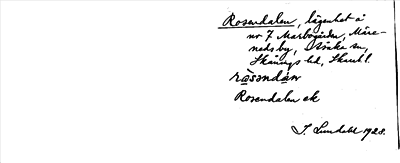 Rosendalen, lägenhet å
nr 7 Marbogården, Märe-
neds by, Istrike sn,
Skånings hd, Skarabl.
ràsəndàn
Rosendalen ek
J. Lundahl 1928.